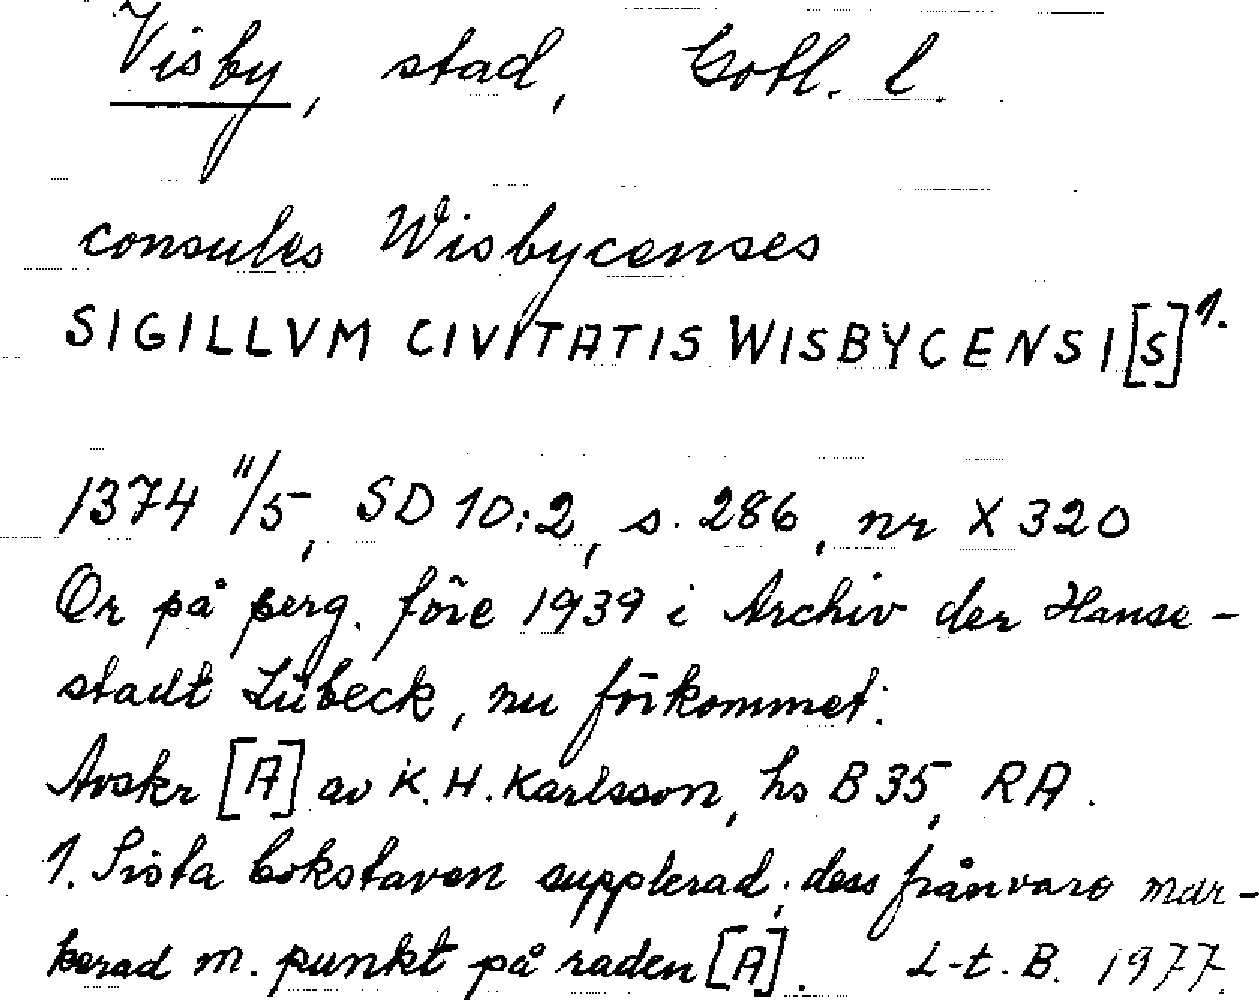 Visby, stad, Gotl. l.
consules Wisbycenses
SIGILLVM CIVITATIS WISBYCENSI[S]1.
1374 11/5, SD 10:2, s. 286, nr X 320
Or på perg. före 1939 i Archiv der Hanse-
stadt Lübeck, nu förkommet.
Avskr [A] av K. H. Karlsson, hs B 35, RA.
1. Sista bokstaven supplerad; dess frånvaro mar-
kerad m. punkt på raden [A]. L-t. B. 1977.